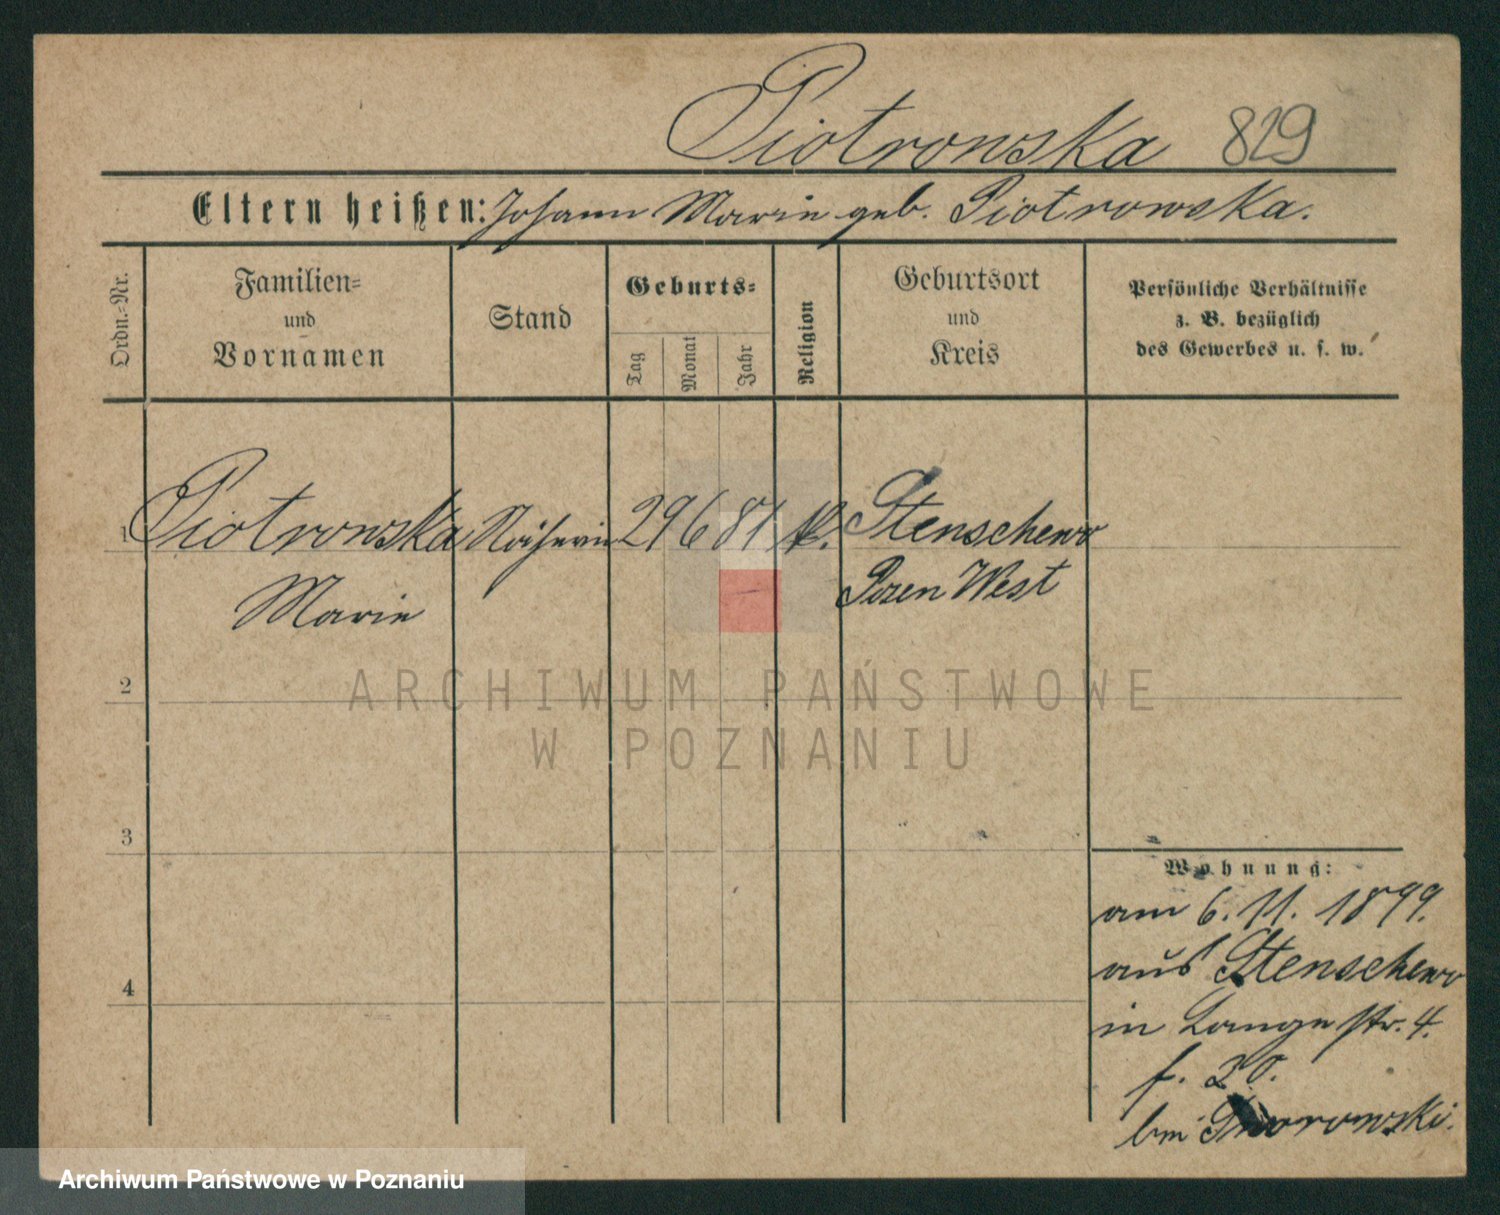 Piotrowska 829
Eltern heißen: Johann Marie geb. Piotrowska.
Ordn.-Nr.
Familien-
und
Vornamen
Stand
Geburts-
Tag
Monat
Jahr
Religion
Geburtsort
und
Kreis
Persönliche Verhältnisse
z. B. bezüglich
des Gewerbes u. s. w.
1 Piotrowska Näherin 29 6 81 k. Stenschewo
Marie Posen West
2
3
4
Wohnung:
am 6. 11. 1899.
aus Stenschewo
in Lange str. 4.
f. 20.
bei
ARCHIWUM PAŃSTWOWE
W POZNANIU
Archiwum Państwowe w Poznaniu